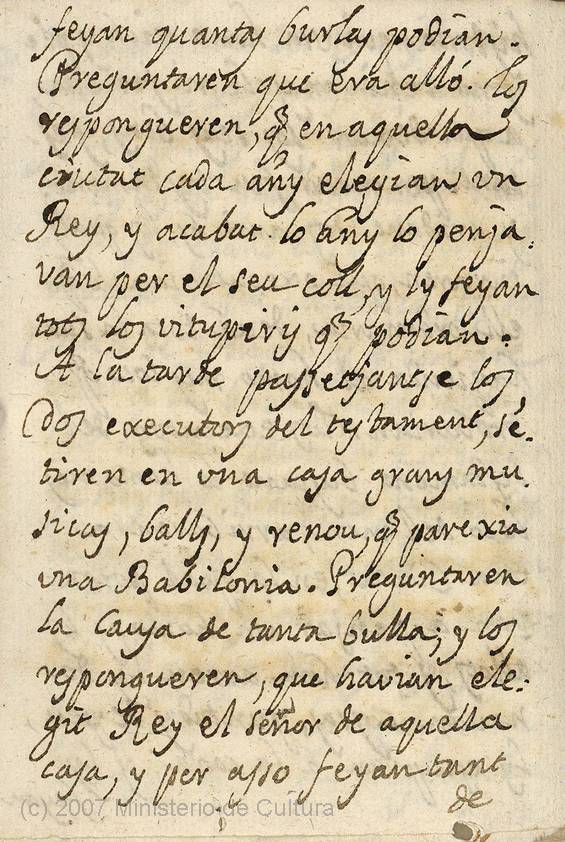 feyan quantas burlas podian.
Preguntaren que era alló. los
respongueren, q̃ en aquella
ciutat cada añy elegian vn
Rey, y acabat lo añy lo penja,
van per el seu coll, y ly feyan
tots los vituperis q̃ podian.
A la tarde passetjantse los
dos executors del testament, sé.
tiren en vna casa grans mu.
sicas, balls, y renou, q̃ parexia
vna Babilonia. Preguntaren
la causa de tanta bulla; y los
respongueren, que havian ele.
git Rey el señor de aquella
casa, y per asso feyan tant
de
(c) 2007 Ministerio de Cultura